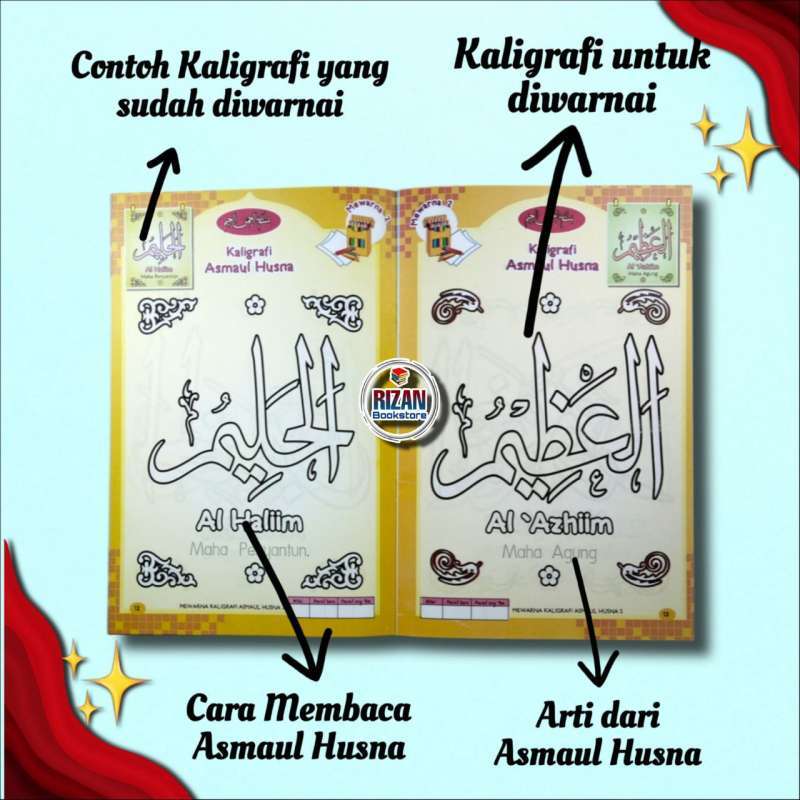 Contoh Kaligrafi yang
sudah diwarnai
Kaligrafi untuk
diwarnai
الحليم
Al Haliim
Maha Penyantun
Kaligrafi
Asmaul Husna
Mewarna 1
الحليم
Al Haliim
Maha Penyantun.
Nilai
12
MEWARNA KALIGRAFI ASMAUL HUSNA 2
RIZAN
Bookstore
Mewarna 2
Kaligrafi
Asmaul Husna
العظيم
Al 'Azhiim
Maha Agung
العظيم
Al 'Azhiim
Maha Agung
Nilai
MEWARNA KALIGRAFI ASMAUL HUSNA 2
13
Cara Membaca
Asmaul Husna
Arti dari
Asmaul Husna